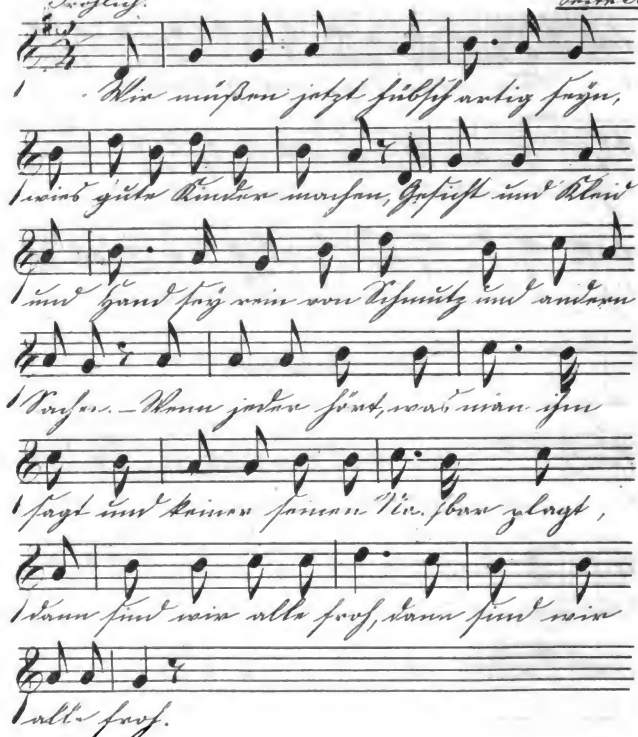 Fröhlich.
Wir müßen jetzt hübsch artig seyn,
wies gute Kinder machen, Gesicht und Kleid
und Hand sey rein von Schmutz und andern
Sachen. – Wenn jeder hört, was man ihm
sagt und keiner seinen plagt,
dann sind wir alle froh, dann sind wir
alle froh.